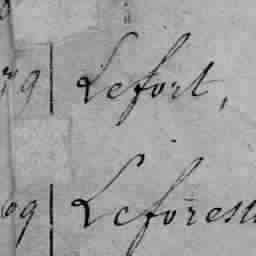 79 Lefort,
09 Leforest